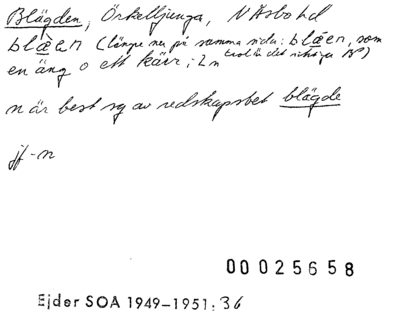 Blägden, Örkelljunga, N Åsbo hd
blǣ̀en (längre ner på samma sida: blǣ́en, som
troligen det riktiga
en äng o ett kärr; Ln
n är best sg av redskapsbet blägde
jf -n
00025658
Ejder SOA 1949-1951: 36